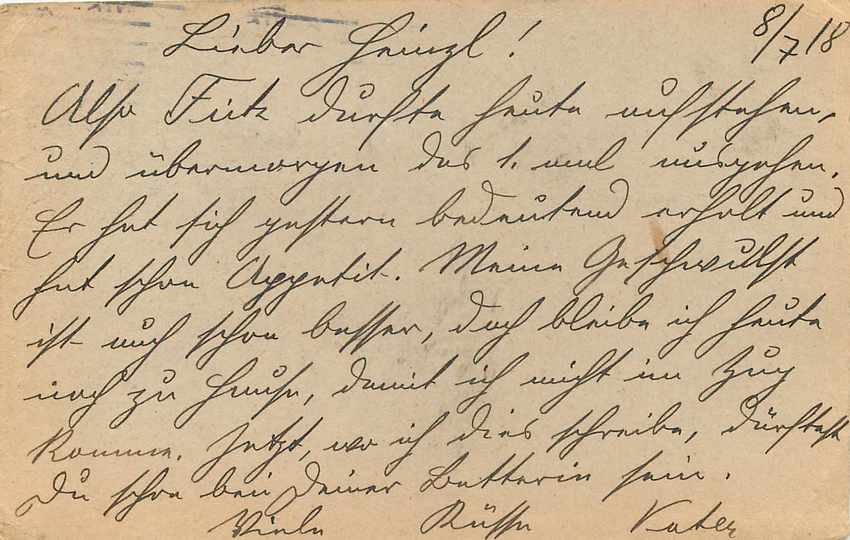 8/7 18
Lieber Heinzl!
Also Fritz durfte heute aufstehen,
und übermorgen das 1. mal ausgehen.
Er hat sich gestern bedeutend erholt und
hat schon Appetit. Meine Geschwulst
ist auch schon besser, doch bleibe ich heute
noch zu Hause, damit ich nicht im Zug
komme. Jetzt, wo ich dies schreibe, dürftest
Du schon bei Deiner sein.
Viele Küsse Vater